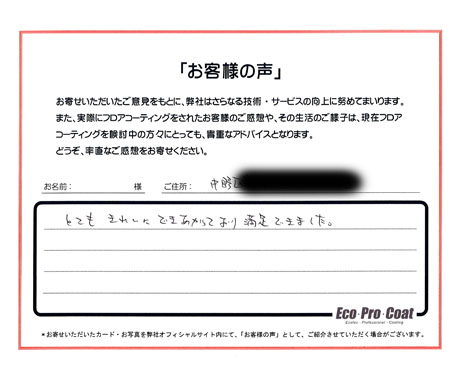 「お客様の声」
お寄せいただいたご意見をもとに、弊社はさらなる技術・サービスの向上に努めてまいります。
また、実際にフロアコーティングをされたお客様のご感想や、その生活のご様子は、現在フロア
コーティングを検討中の方々にとっても、貴重なアドバイスとなります。
どうぞ、率直なご感想をお寄せください。
お名前: 様 ご住所: 中野区
とても きれいに できあがっており 満足できました。
Eco・Pro・Coat
Ecolex・Professional・Coating
*お寄せいただいたカード・お写真を弊社オフィシャルサイト内にて、「お客様の声」として、ご紹介させていただく場合がございます。